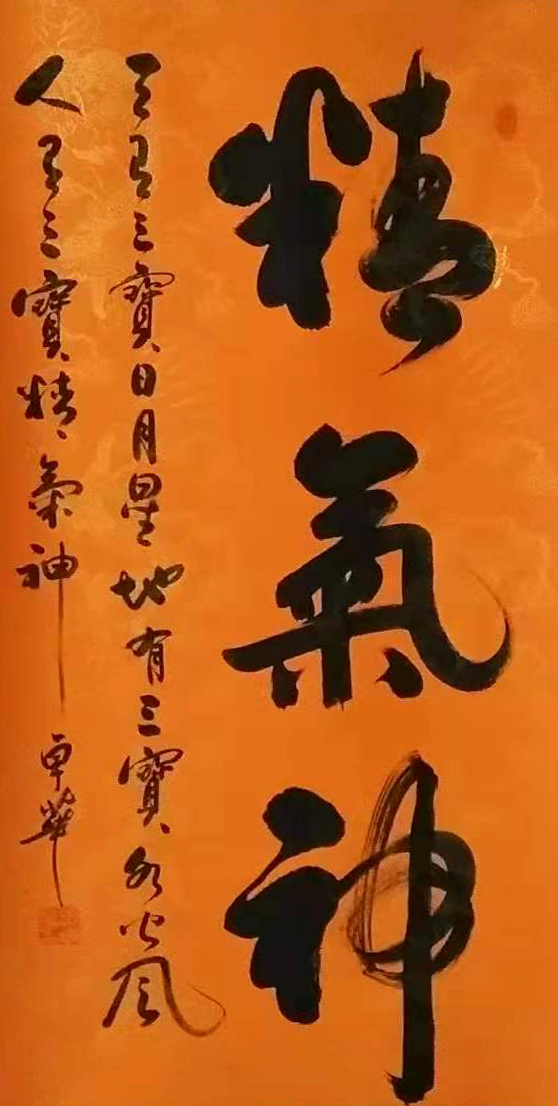 精氣神
天有三寶日月星地有三寶水火風
人有三寶精氣神
卓華